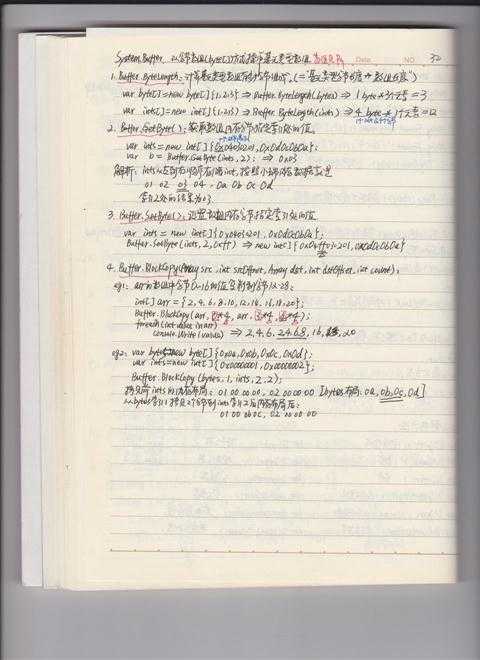 System.Buffer 以字节数组(byte[])方式操作基元类型数组 Date NO. 32
1. Buffer.ByteLength: 计算基元类型数组 ("=基元类型字节长度*数组长度")
var byte[]=new byte[]{1.2.3} ⇒ Buffer.ByteLength(bytes) ⇒ 1 byte * 3个元素 = 3
var ints[]=new int[]{1.2.3} ⇒ Buffer.ByteLength(ints) ⇒ 4 byte * 3个元素 = 12
2. Buffer.GetByte(): 获取数组内存中字节指定索引处的值.
var ints=new int[]{0x04030201, 0x0d0c0b0a};
var b = Buffer.GetByte(ints, 2); ⇒ 0x03
解析: ints
01 02 03 04 . 0a 0b 0c 0d
索引2处的结果为03
3. Buffer.SetByte(): 设置数组内存字节指定索引处的值
var ints=new int[]{0x04030201, 0x0d0c0b0a};
Buffer.SetByte(ints, 2, 0xff) ⇒ new int[]{0x04ff0201, 0x0d0c0b0a}
4. Buffer.BlockCopy(Array src, int srcOffset, Array dst, int dstOffset, int count);
eg1: arr的数组中字节0-16的值复制到字节12-28:
int[] arr = {2, 4, 6, 8, 10, 12, 14, 16, 18, 20};
Buffer.BlockCopy(arr, 0*4, arr, 3*4, 4*4);
foreach(int deler in arr)
Console.Write(value) ⇒ 2, 4, 6, 2,4,6,8, 16, 18, 20
eg2: var bytes=new byte[]{0x0a, 0x0b, 0x0c, 0x0d};
var ints=new int[]{0x00000001, 0x00000002};
Buffer.BlockCopy(bytes, 1, ints, 2, 2);
拷贝前ints的内存布局: 01 00 00 00, 02 00 00 00 [bytes布局: 0a, 0b, 0c, 0d]
从bytes索引1拷贝2个字节到ints索引2后内存布局为:
01 00 0b 0c, 02 00 00 00